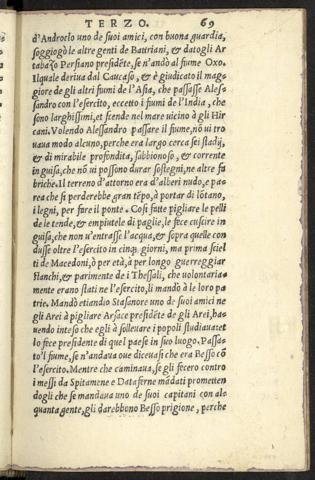 TERZO. 69
d'Androclo uno de suoi amici, con buona guardia,
soggiogò le altre genti de Battriani, & datogli Ar
tabaȝo Persiano presidēte, se n'andò al fiume Oxo.
Il quale deriua dal Caucaso, & è giudicato il mag=
giore de gli altri fiumi de l'Asia, che passasse Ales=
sandro con l'esercito, eccetto i fiumi de l'India, che
sono larghissimi, et scende nel mare uicino à gli Hir
cani. Volendo Alessandro passare il fiume, nō ui tro
uaua modo alcuno, perche era largo cerca sei stadij,
& di mirabile profondita, sabbionoso, & corrente
in guisa, che nō ui possono durar sostegni, ne altre fa
briche. Il terreno d'attorno era d'alberi nudo, e pa
rea che si perderebbe gran tēpo, à portar di lōtano,
i legni, per fare il ponte. Cosi fatte pigliare le pelli
de le tende, & empiutele di paglie, le fece cuscire in
guisa, che non u'entrasse l'acqua, & sopra quelle con
dusse oltre l'esercito in cinq; giorni, ma prima sciel
ti de Macedoni, ò per età, à per longo guerreggiar
stanchi, & parimente de i Thessali, che uolontaria=
mente erano stati ne l'esercito, li mandò à le loro pa
trie. Mandò etiandio Stasanore uno de suoi amici ne
gli Arei à pigliare Arsace presidēte de gli Arei, ha=
uendo inteso che egli à solleuare i popoli studiaua et
lo fece presidente di quel paese in suo luogo. Passa=
to'l fiume, se n'andaua oue diceuasi che era Besso cō
l'esercito. Mentre che caminaua, se gli fecero contro
i messi da Spitamene e Dataferne mādati prometten
dogli che se mandaua uno de suoi capitani con al=
quanta gente, gli darebbono Besso prigione, perche